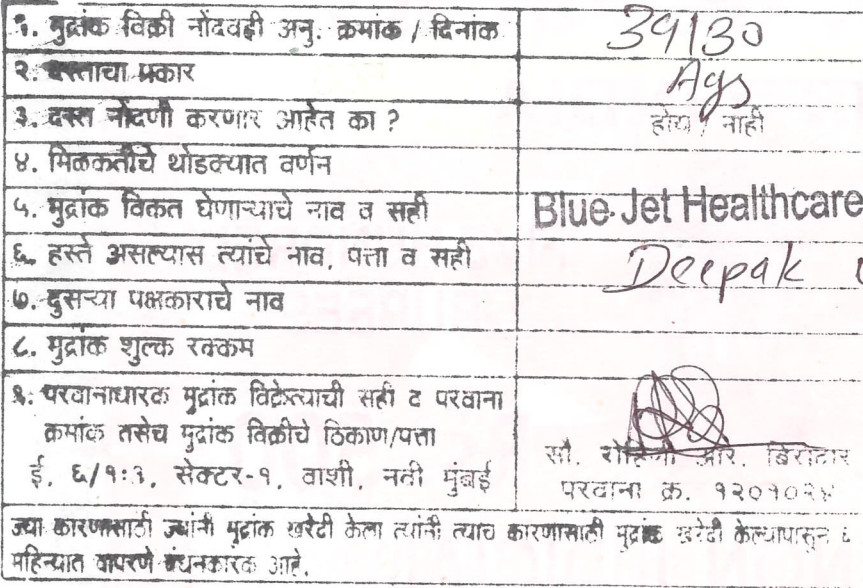 १. मुद्रांक विक्री नोंदवही अनु. क्रमांक / दिनांक 39130
२. दस्ताचा प्रकार Ags
३. दस्त नोंदणी करणार आहेत का ? होय / नाही
४. मिळकतीचे थोडक्यात वर्णन
५. मुद्रांक विकत घेणाऱ्याचे नाव व सही Blue Jet Healthcare
६. हस्ते असल्यास त्यांचे नाव, पत्ता व सही Deepak
७. दुसऱ्या पक्षकाराचे नाव
८. मुद्रांक शुल्क रक्कम
९. परवानाधारक मुद्रांक विक्रेत्याची सही व परवाना
क्रमांक तसेच मुद्रांक विक्रीचे ठिकाण/पत्ता
ई. ६/१:३, सेक्टर-१, वाशी, नवी मुंबई
सौ. रोहिणी आर. बिरादार
परवाना क्र. १२०१०२४
ज्या कारणासाठी ज्यांनी मुद्रांक खरेदी केला त्यांनी त्याच कारणासाठी मुद्रांक खरेदी केल्यापासून ६
महिन्यात वापरणे बंधनकारक आहे.